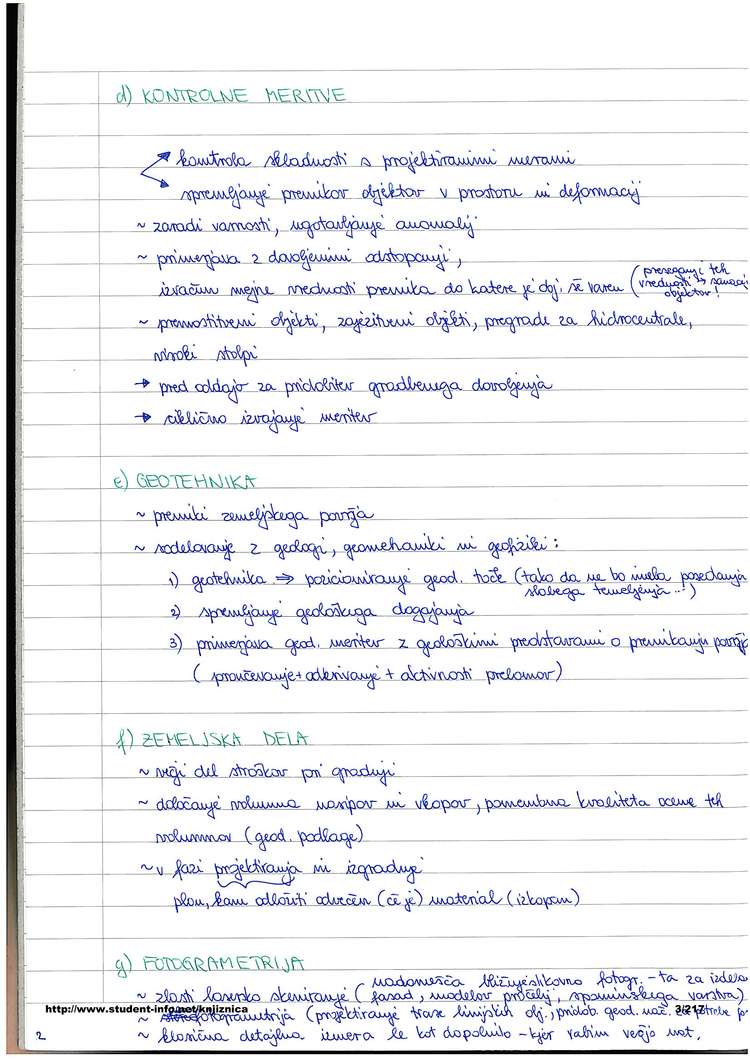 d) KONTROLNE MERITVE
kontrola skladnosti s projektiranimi merami
spremljanje premikov objektov v prostoru in deformacij
~ zaradi varnosti, ugotavljanje anomalij
~ primerjava z dovoljenimi odstopanji,
izračun mejne vrednosti premika do katere je obj. še varen (preseganje teh
vrednosti → sanacija
objektov!
~ premostitveni objekti, zajezitveni objekti, pregrade za hidrocentrale,
visoki stolpi
→ pred oddajo za pridobitev gradbenega dovoljenja
→ ciklično izvajanje meritev
e) GEOTEHNIKA
~ premiki zemeljskega površja
~ sodelovanje z geologi, geomehaniki in geofiziki:
1) geotehnika ⇒ pozicioniranje geod. točk (tako da ne bo imela posedanja
slabega temeljenja...)
2) spremljanje geološkega dogajanja
3) primerjava geod. meritev z geološkimi predstavami o premikanju površja
(proučevanje + odkrivanje + aktivnosti prelomov)
f) ZEMELJSKA DELA
~ večji del stroškov pri gradnji
~ določanje volumna nasipov in vkopov, pomembna kvaliteta ocene teh
volumnov (geod. podlage)
~ v fazi projektiranja in izgradnje
plan, kam odložiti odvečen (če je) material (izkopan)
g) FOTOGRAMETRIJA
nadomešča bližnjeslikovno fotogr. - ta za izdela
~ zlasti lasersko skeniranje (fasad, modelov pročelj, spomeniškega varstva)
http://www.student-info.net/knjiznica
3/217
~ fotogrametrija (projektiranje trase linijskih obj., pridob. geod. nač. za potrebe
~ klasična detajlna izmera le kot dopolnilo - kjer rabim večjo nat.
2